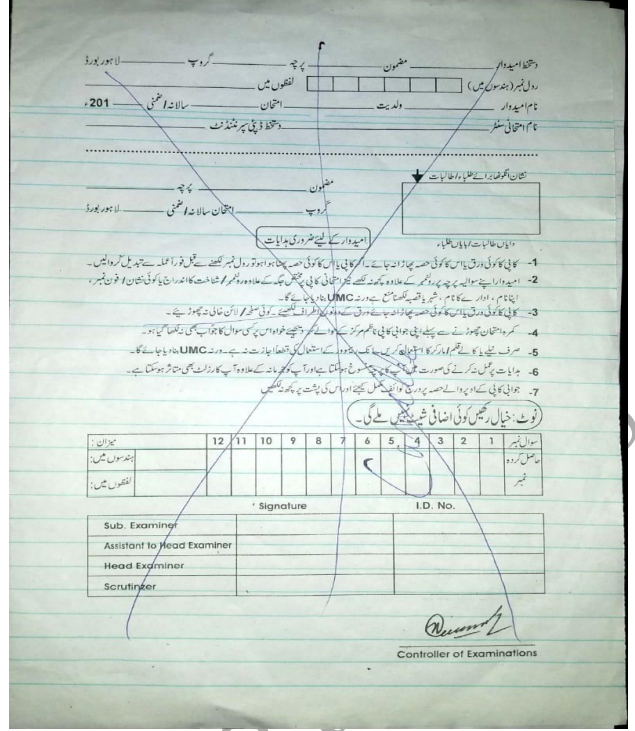 دستخط امیدوار مضمون پرچہ گروپ لاہور بورڈ
رول نمبر (ہندسوں میں) لفظوں میں
نام امیدوار ولدیت امتحان سالانہ / ضمنی 201ء
نام امتحانی سنٹر دستخط ڈپٹی سپرنٹنڈنٹ
نشان انگوٹھا برائے طلباء / طالبات
مضمون پرچہ
گروپ امتحان سالانہ / ضمنی لاہور بورڈ
دایاں طالبات / بایاں طلباء
امیدوار کے لیئے ضروری ہدایات
1- کاپی کا کوئی ورق یا اس کا کوئی حصہ پھاڑا نہ جائے۔ اگر کاپی یا اس کا کوئی حصہ پھٹا ہوا ہو تو رول نمبر لکھنے سے قبل فوراً عملہ سے تبدیل کروالیں۔
2- امیدوار اپنے سوالیہ پرچہ پر رولنمبر کے علاوہ کچھ نہ لکھے نیز امتحانی کاپی پر مختص جگہ کے علاوہ رولنمبر / شناخت کا اندراج یا کوئی نشان / فون نمبر،
اپنا نام، ادارے کا نام، شہر یا قصبہ لکھنا منع ہے ورنہ UMC بنا دیا جائے گا۔
3- کاپی کا کوئی ورق یا اس کا کوئی حصہ پھاڑا نہ جائے ورق کے دونوں اطراف لکھئیے۔ کوئی صفحہ / لائن خالی نہ چھوڑیئے۔
4- کمرہ امتحان چھوڑنے سے پہلے اپنی جوابی کاپی ناظم مرکز کے حوالے کر دیجئیے خواہ اس پر کسی سوال کا جواب بھی نہ لکھا گیا ہو۔
5- صرف نیلے یا کالے قلم / مارکر کا استعمال کریں استعمال کی قطعاً اجازت نہ ہے۔ ورنہ UMC بنا دیا جائے گا۔
6- ہدایات پر عمل نہ کرنے کی صورت میں آپ کا پرچہ منسوخ ہو سکتا ہے اور آپ کو جرمانہ کے علاوہ آپ کا رزلٹ بھی متاثر ہو سکتا ہے۔
7- جوابی کاپی کے اوپر والے حصہ پر درج کوائف مکمل کیجئے اور اس کی پشت پر کچھ نہ لکھیں
نوٹ: خیال رکھیں کوئی اضافی شیٹ نہیں ملے گی۔
سوال نمبر 1 2 3 4 5 6 7 8 9 10 11 12 میزان:
حاصل کردہ نمبر ہندسوں میں:
لفظوں میں:
Signature I.D. No.
Sub. Examiner
Assistant to Head Examiner
Head Examiner
Scrutinizer
Controller of Examinations